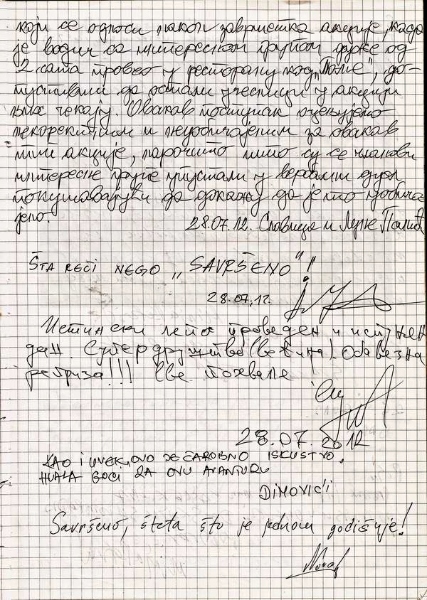 који се односи након завршетка акције, када
је водич са интересном групом дуже од
2 сата провео у ресторану код „Попе", до-
пустивши да остали учесници у акцији
њих чекају. Овакав поступак оцењујемо
некоректним и неуобичајеним за овакав
тип акције, нарочито што су се чланови
интересне групе упустили у вербални дуел
покушавајући да докажу да је то уобича-
јено.
28.07.12. Славица и
ŠTA REĆI NEGO „SAVRŠENO"!
28.07.12
Истински лепо проведен и испуњен
дан. Супер друштво (већина). Обавезна
реприза!!! Све похвале
28.07.2012
KAO I UVEK, OVO JE ČAROBNO ISKUSTVO.
HVALA BOCI ZA OVU AVANTURU
DIMOVIĆI
Savršeno, šteta što je jednom godišnje!